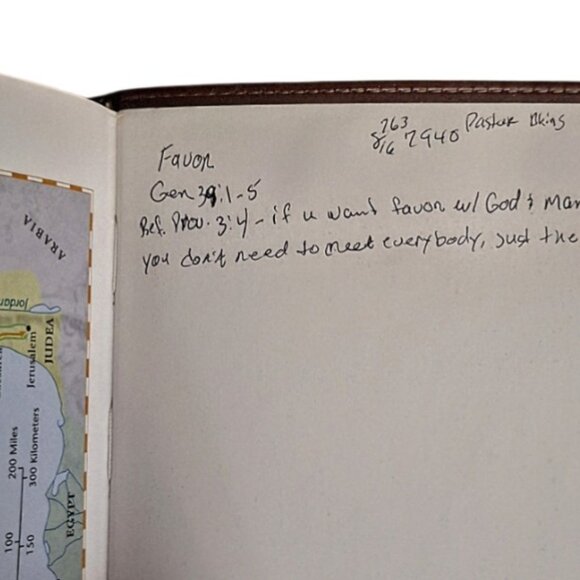 763
816 7940 Pastor
Favor
Gen 39:1-5
Ref. Prov. 3:4 - if u want favor w/ God & Man
you don't need to meet everybody, just the
ARABIA
Jordan
Jerusalem
JUDEA
200 Miles
300 Kilometers
EGYPT
100
150